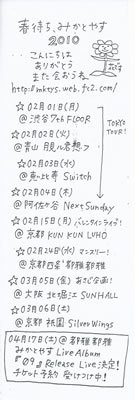 春待ち、みかとやす
2010
こんにちは
ありがとう
また会おうね
http://mktys.web.fc2.com/
TOKYO
TOUR!
☆02月01日(月)
@渋谷7th FLOOR
☆02月02日(火)
@青山 月見ル君想フ
☆02月03日(水)
@恵比寿 Switch
☆02月04日(木)
@阿佐ヶ谷 Next Sunday
☆02月15日(月) バレンタインライヴ!
@京都 KUN KUN LUHO
☆02月24日(水) マンスリー!
@京都西院 都雅都雅
☆03月05日(金) あさど企画!
@大阪 北堀江 SUNHALL
☆03月06日(土)
@京都 祇園 Silver Wings
04月17日(土)@都雅都雅
みかとやす Live Album
『09』Release Live 決定!
チケット予約 受けつけ中!